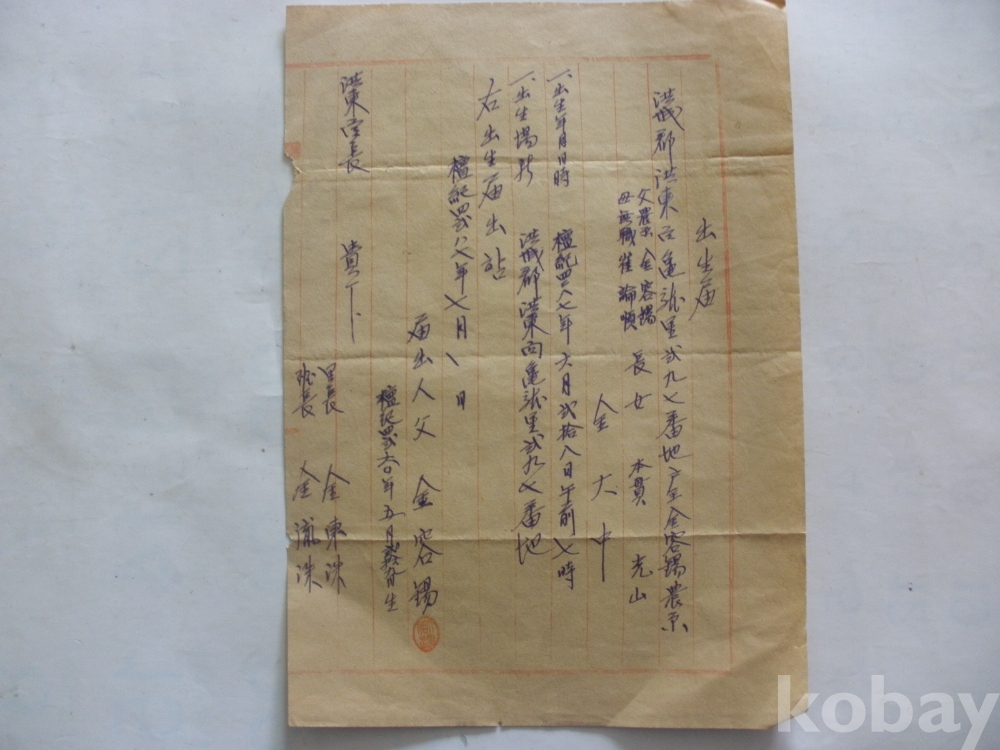 出生届
洪城郡洪東面龜龍里弐九七番地戸主金容錫農業
父農業金容錫
母無職崔論順
長女 本貫 光山
金大中
一、出生年月日時 檀紀四二八七年六月弐拾八日午前七時
一、出生場所 洪城郡洪東面龜龍里弐九七番地
右出生届出함
檀紀四弐八七年七月八日
届出人父 金容錫
檀紀四弐六〇年五月 日生
洪東面長 貴下
里長 金東洙
班長 金 洙
kobay